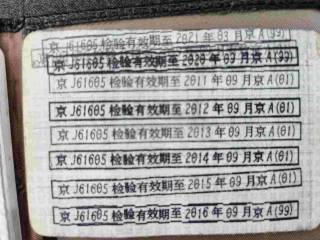 京J61605检验有效期至2021年03月京A(99)
京J61605检验有效期至2020年09月京A(99)
京J61605检验有效期至2011年09月京A(01)
京J61605检验有效期至2012年09月京A(01)
京J61605检验有效期至2013年09月京A(01)
京J61605检验有效期至2014年09月京A(01)
京J61605检验有效期至2015年09月京A(01)
京J61605检验有效期至2016年09月京A(99)